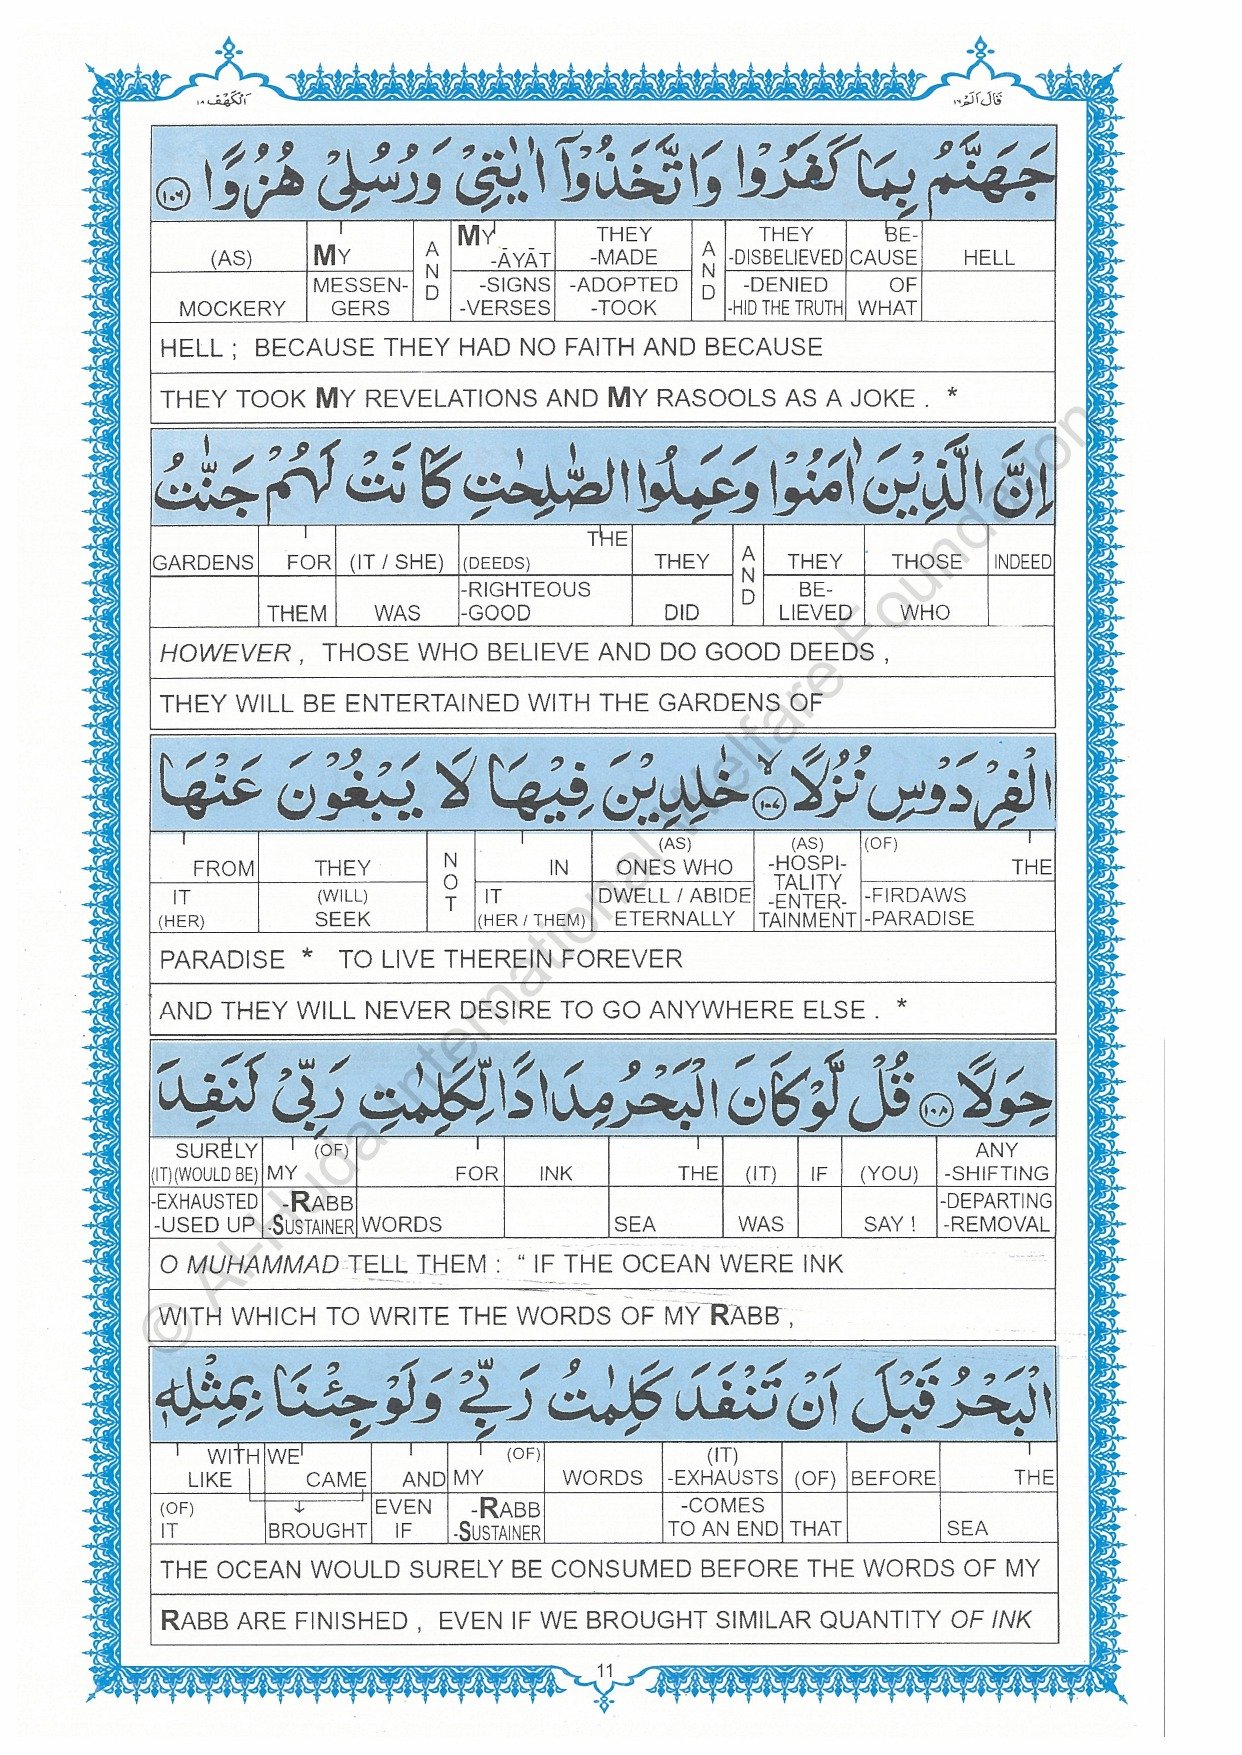 قَالَ اَلَمْ ١٦
اَلْكَهْف ١٨
جَهَنَّمُ بِمَا كَفَرُوْا وَاتَّخَذُوْۤا اٰيٰتِيْ وَرُسُلِيْ هُزُوًا ١٠٦
(AS) MY AND MY THEY AND THEY BE- HELL
-ĀYĀT -MADE -DISBELIEVED CAUSE
MESSEN- -SIGNS -ADOPTED -DENIED OF
MOCKERY GERS -VERSES -TOOK -HID THE TRUTH WHAT
HELL ; BECAUSE THEY HAD NO FAITH AND BECAUSE
THEY TOOK MY REVELATIONS AND MY RASOOLS AS A JOKE . *
اِنَّ الَّذِيْنَ اٰمَنُوْا وَعَمِلُوا الصّٰلِحٰتِ كَانَتْ لَهُمْ جَنّٰتُ
THE
GARDENS FOR (IT / SHE) (DEEDS) THEY AND THEY THOSE INDEED
-RIGHTEOUS BE-
THEM WAS -GOOD DID LIEVED WHO
HOWEVER , THOSE WHO BELIEVE AND DO GOOD DEEDS ,
THEY WILL BE ENTERTAINED WITH THE GARDENS OF
الْفِرْدَوْسِ نُزُلًا ۙ ١٠٧ خٰلِدِيْنَ فِيْهَا لَا يَبْغُوْنَ عَنْهَا
(AS) (AS) (OF)
FROM THEY NOT IN ONES WHO -HOSPI- THE
TALITY
IT (WILL) IT DWELL / ABIDE -ENTER- -FIRDAWS
(HER) SEEK (HER / THEM) ETERNALLY TAINMENT -PARADISE
PARADISE * TO LIVE THEREIN FOREVER
AND THEY WILL NEVER DESIRE TO GO ANYWHERE ELSE . *
حِوَلًا ١٠٨ قُلْ لَّوْ كَانَ الْبَحْرُ مِدَادًا لِّكَلِمٰتِ رَبِّيْ لَنَفِدَ
SURELY (OF) ANY
(IT)(WOULD BE) MY FOR INK THE (IT) IF (YOU) -SHIFTING
-EXHAUSTED -RABB -DEPARTING
-USED UP -SUSTAINER WORDS SEA WAS SAY ! -REMOVAL
O MUHAMMAD TELL THEM : “ IF THE OCEAN WERE INK
WITH WHICH TO WRITE THE WORDS OF MY RABB ,
الْبَحْرُ قَبْلَ اَنْ تَنْفَدَ كَلِمٰتُ رَبِّيْ وَلَوْ جِئْنَا بِمِثْلِهٖ
WITH WE (OF) (IT)
LIKE CAME AND MY WORDS -EXHAUSTS (OF) BEFORE THE
(OF) ↓ EVEN -RABB -COMES
IT BROUGHT IF -SUSTAINER TO AN END THAT SEA
THE OCEAN WOULD SURELY BE CONSUMED BEFORE THE WORDS OF MY
RABB ARE FINISHED , EVEN IF WE BROUGHT SIMILAR QUANTITY OF INK
11
© Al-Huda International Welfare Foundation